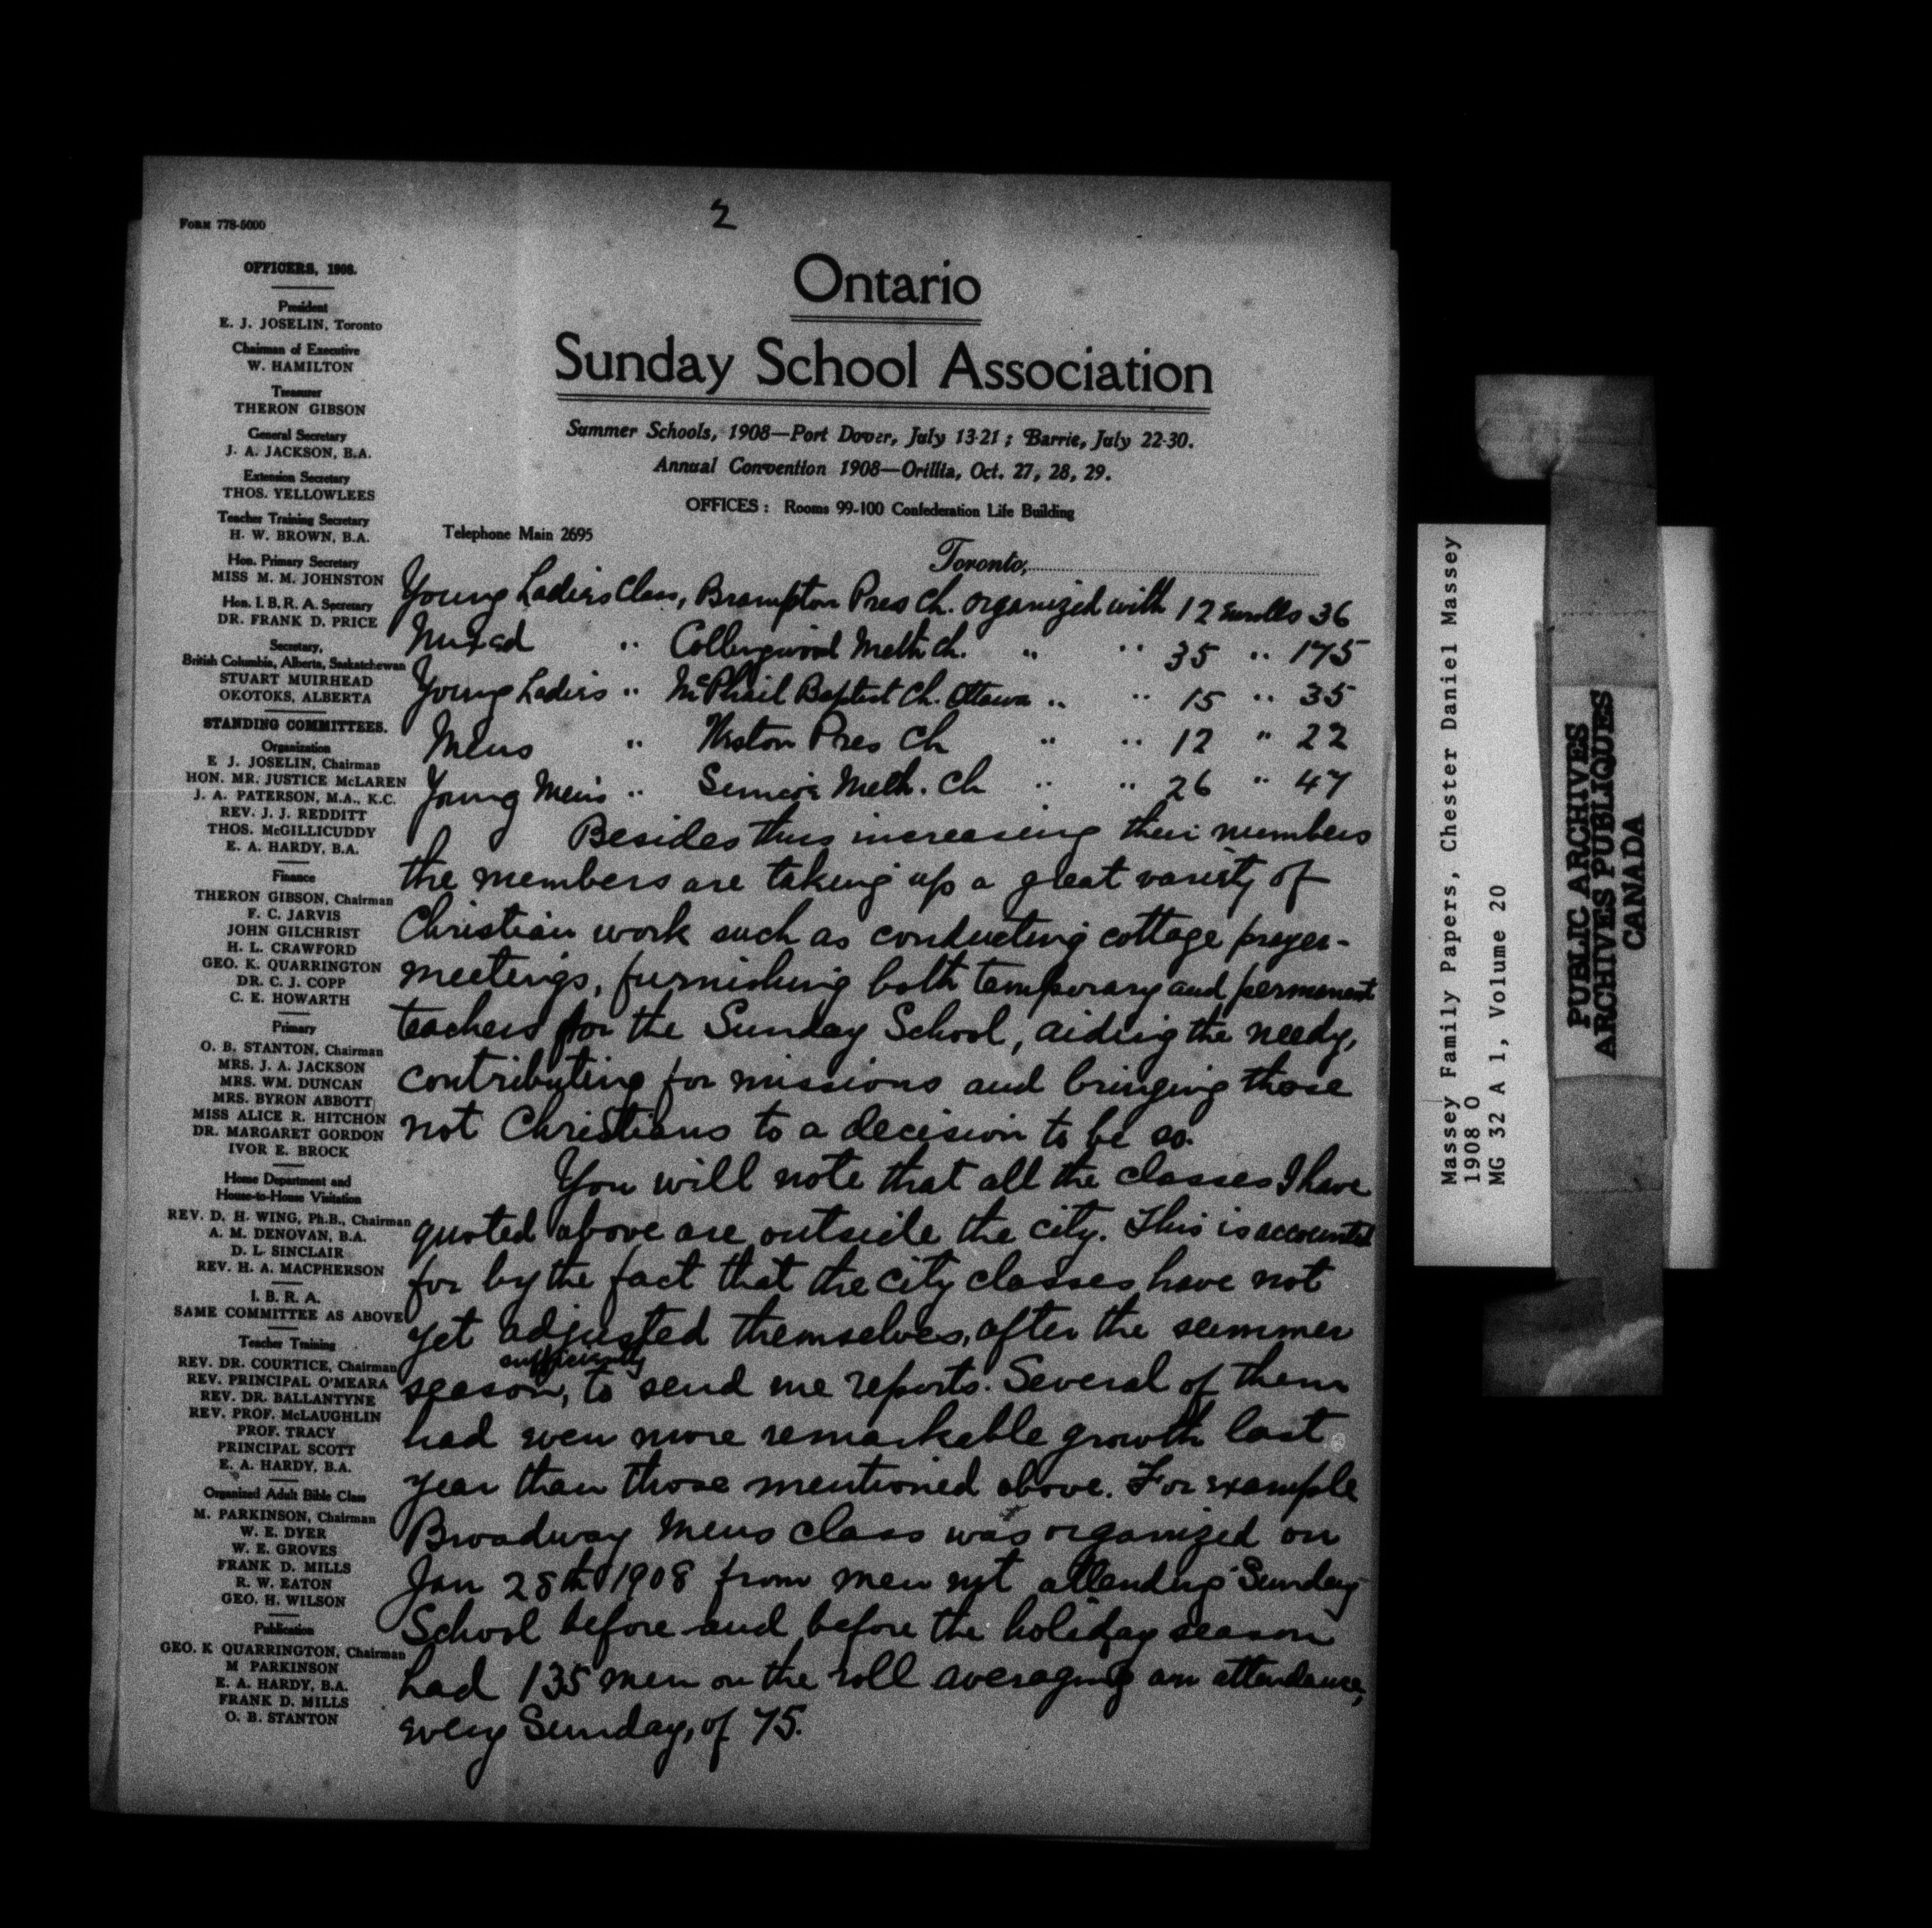 2
Form 778-5000
OFFICERS, 1908.
President
E. J. JOSELIN, Toronto
Chairman of Executive
W. HAMILTON
Treasurer
THERON GIBSON
General Secretary
J. A. JACKSON, B.A.
Extension Secretary
THOS. YELLOWLEES
Teacher Training Secretary
H. W. BROWN, B.A.
Hon. Primary Secretary
MISS M. M. JOHNSTON
Hon. I. B. R. A. Secretary
DR. FRANK D. PRICE
Secretary,
British Columbia, Alberta, Saskatchewan
STUART MUIRHEAD
OKOTOKS, ALBERTA
STANDING COMMITTEES.
Organization
E J. JOSELIN, Chairman
HON. MR. JUSTICE McLAREN
J. A. PATERSON, M.A., K.C.
REV. J. J. REDDITT
THOS. McGILLICUDDY
E. A. HARDY, B.A.
Finance
THERON GIBSON, Chairman
F. C. JARVIS
JOHN GILCHRIST
H. L. CRAWFORD
GEO. K. QUARRINGTON
DR. C. J. COPP
C. E. HOWARTH
Primary
O. B. STANTON, Chairman
MRS. J. A. JACKSON
MRS. WM. DUNCAN
MRS. BYRON ABBOTT
MISS ALICE R. HITCHON
DR. MARGARET GORDON
IVOR E. BROCK
Home Department and
House-to-House Visitation
REV. D. H. WING, Ph.B., Chairman
A. M. DENOVAN, B.A.
D. L. SINCLAIR
REV. H. A. MACPHERSON
I. B. R. A.
SAME COMMITTEE AS ABOVE
Teacher Training
REV. DR. COURTICE, Chairman
REV. PRINCIPAL O'MEARA
REV. DR. BALLANTYNE
REV. PROF. McLAUGHLIN
PROF. TRACY
PRINCIPAL SCOTT
E. A. HARDY, B.A.
Organized Adult Bible Class
M. PARKINSON, Chairman
W. E. DYER
W. E. GROVES
FRANK D. MILLS
R. W. EATON
GEO. H. WILSON
Publication
GEO. K QUARRINGTON, Chairman
M PARKINSON
E. A. HARDY, B.A.
FRANK D. MILLS
O. B. STANTON
Ontario
Sunday School Association
Summer Schools, 1908—Port Dover, July 13-21; Barrie, July 22-30.
Annual Convention 1908—Orillia, Oct. 27, 28, 29.
OFFICES: Rooms 99-100 Confederation Life Building
Telephone Main 2695
Toronto,
Young Ladies Class, Brampton Pres Ch. organized with 12 enrolls 36
Mixed " Collingwood Meth ch. " " 35 " 175
Young Ladies " McPhail Baptist Ch. Ottawa " " 15 " 35
Mens " Weston Pres Ch " " 12 " 22
Young Men's " Meth. Ch " " 26 " 47
Besides thus increasing their numbers
the members are taking up a great variety of
Christian work such as conducting cottage prayer-
meetings, furnishing both temporary and permanent
teachers for the Sunday School, aiding the needy,
contributing for missions and bringing those
not Christians to a decision to be so.
You will note that all the classes I have
quoted above are outside the city. This is accounted
for by the fact that the city classes have not
yet adjusted themselves, after the summer
sufficiently
season, to send me reports. Several of them
had even more remarkable growth last
year than those mentioned above. For example
Broadway Mens class was organized on
Jan 28th 1908 from men not attending Sunday
School before and before the holiday season
had 135 men on the roll averaging an attendance,
every Sunday, of 75.
Massey Family Papers, Chester Daniel Massey
1908 O
MG 32 A 1, Volume 20
PUBLIC ARCHIVES
ARCHIVES PUBLIQUES
CANADA